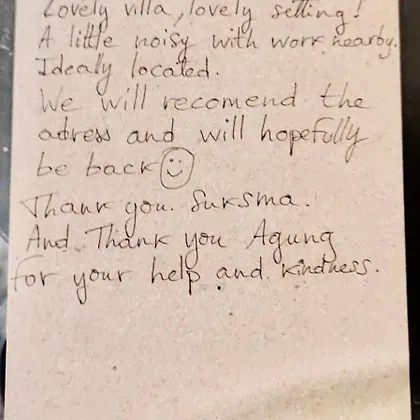 Lovely villa, lovely setting!
A little noisy with work nearby.
Idealy located.
We will recomend the
adress and will hopefully
be back ☺
Thank you. Suksma.
And Thank you Agung
for your help and kindness.